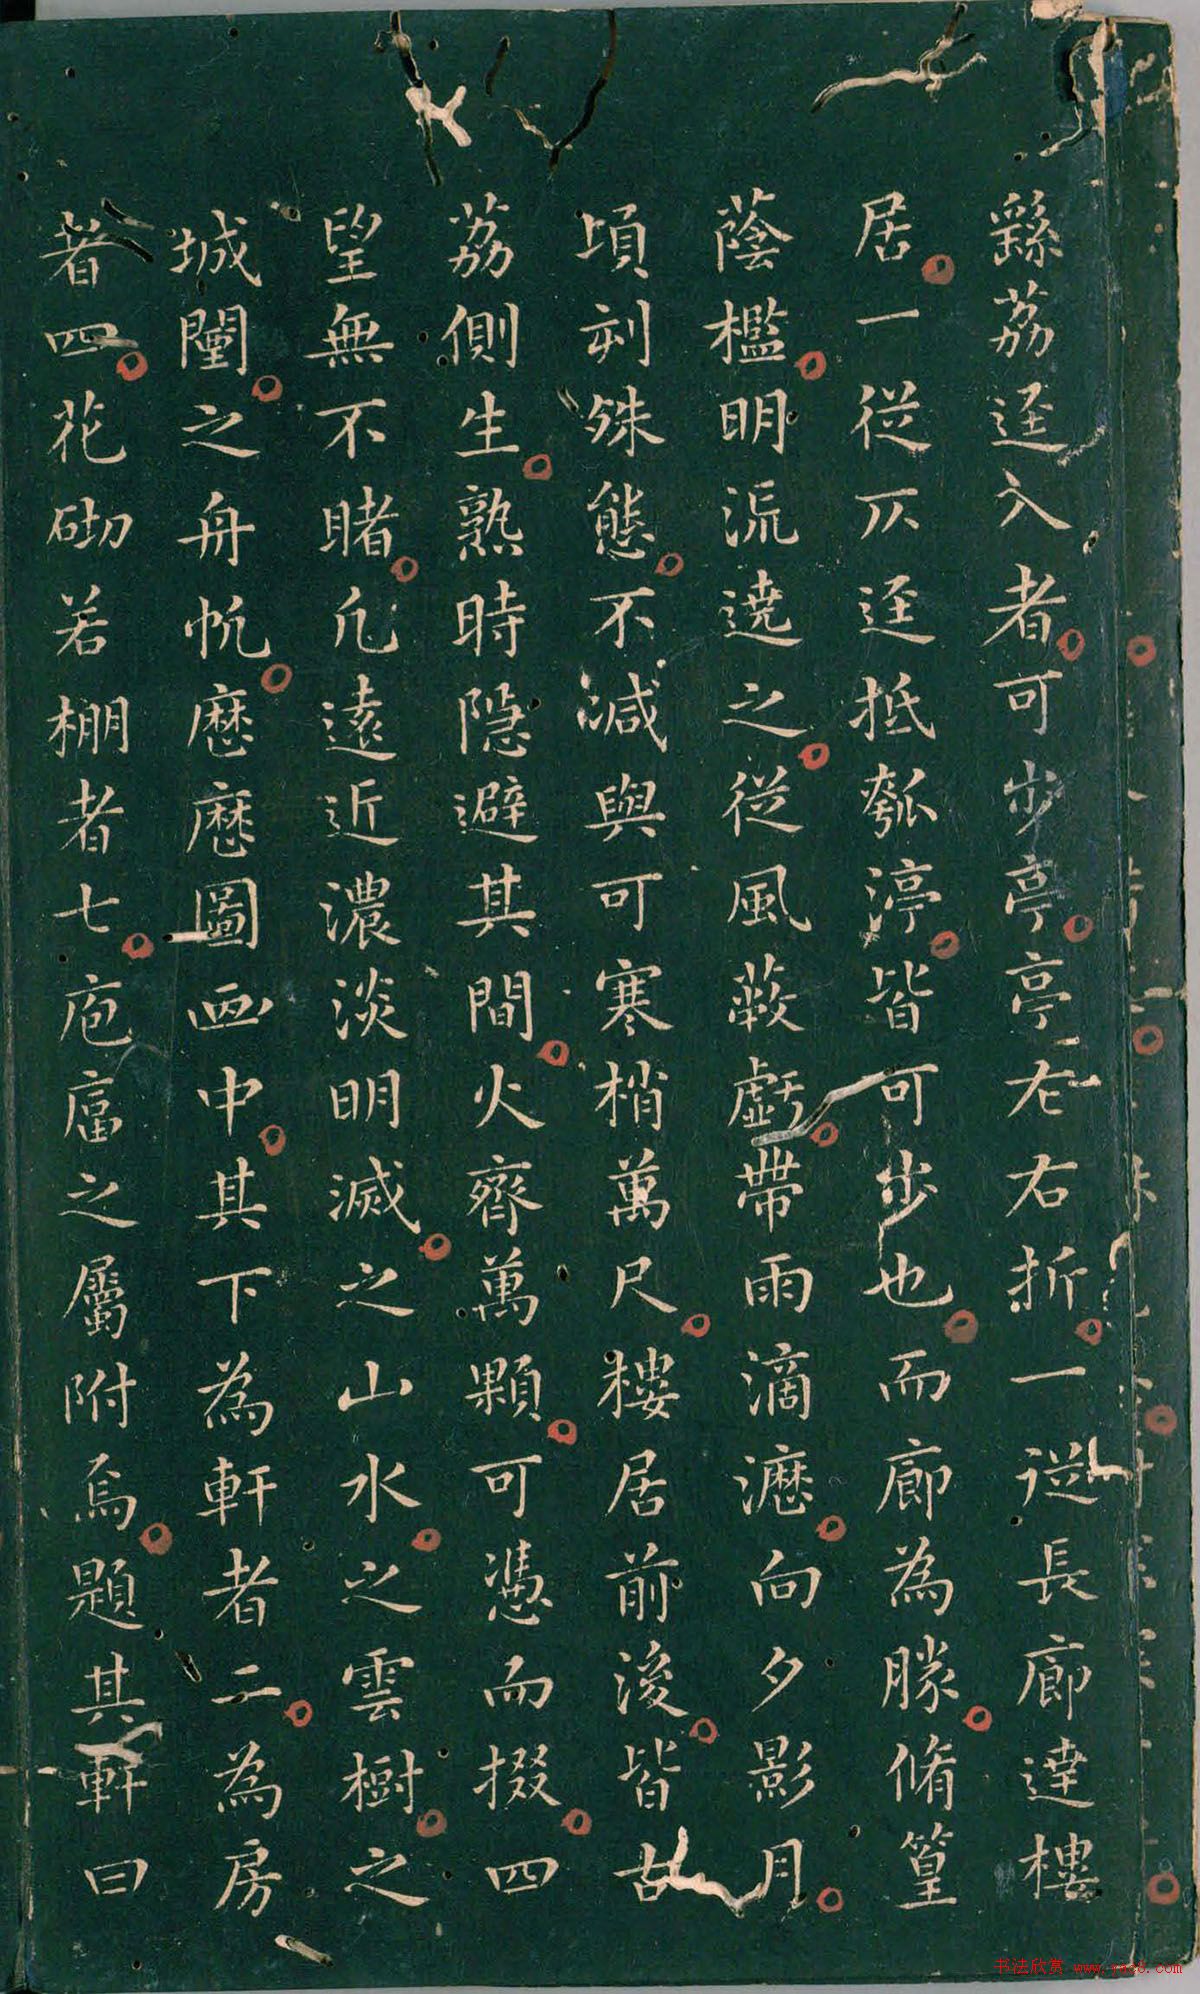 繇荔逕入者可步亭亭左右折一從長廊達樓
居一從仄逕抵瓠渟皆可步也而廊為勝脩篁
蔭檻明流遶之從風蔌戲帶雨滴瀝向夕影月
頃刻殊態不減與可寒梢萬尺樓居前後皆古
荔側生熟時隱避其間火齊萬顆可憑而掇四
望無不睹凡遠近濃淡明滅之山水之雲樹之
城闉之舟帆歷歷圖画中其下為軒者二為房
者四花砌若棚者七庖廥之屬附焉題其軒曰
书法欣赏 www.yac8.com